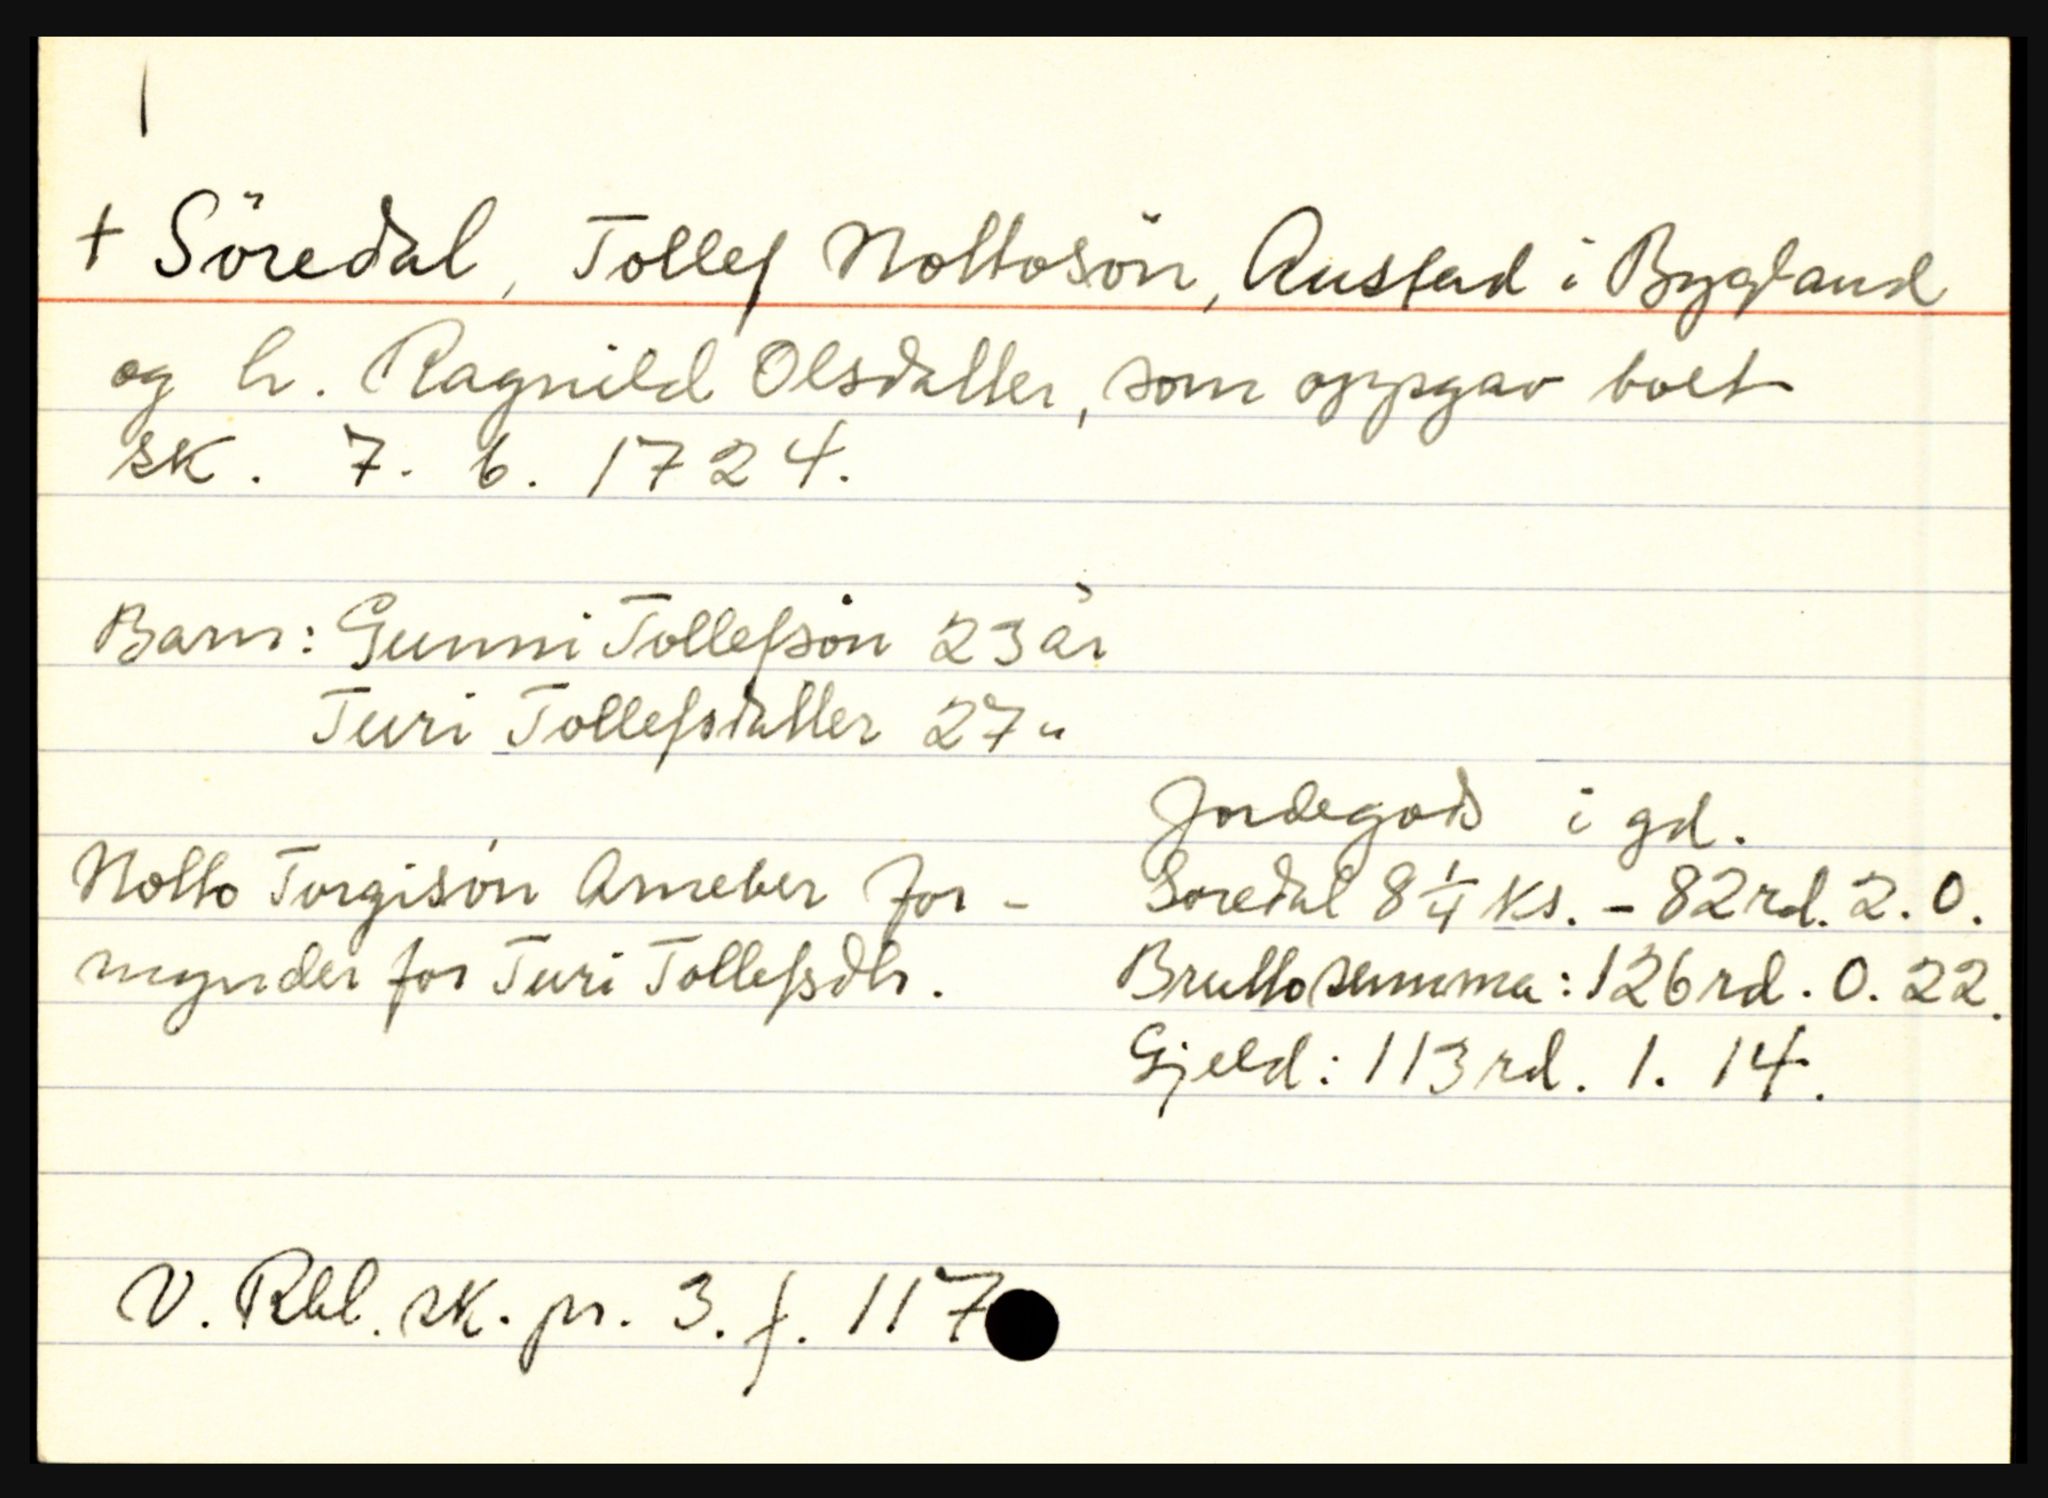 + Söredal, Tollef Noltosön, Austad i Bygland
og h. Ragnild Olsdatter, som oppgav boet
sk. 7. 6. 1724.
Barn: Gunni Tollefsön 23 år
Turi Tollefsdatter 27 "
Nolto Torgisön Arneber for-
mynder for Turi Tollefsdtr.
Jordegods i gd.
Soredal 8 1/4 ks. - 82 rd. 2. 0.
Brutto summa: 126 rd. 0. 22.
Gjeld: 113 rd. 1. 14.
V. Rbl. sk. pr. 3. f. 117